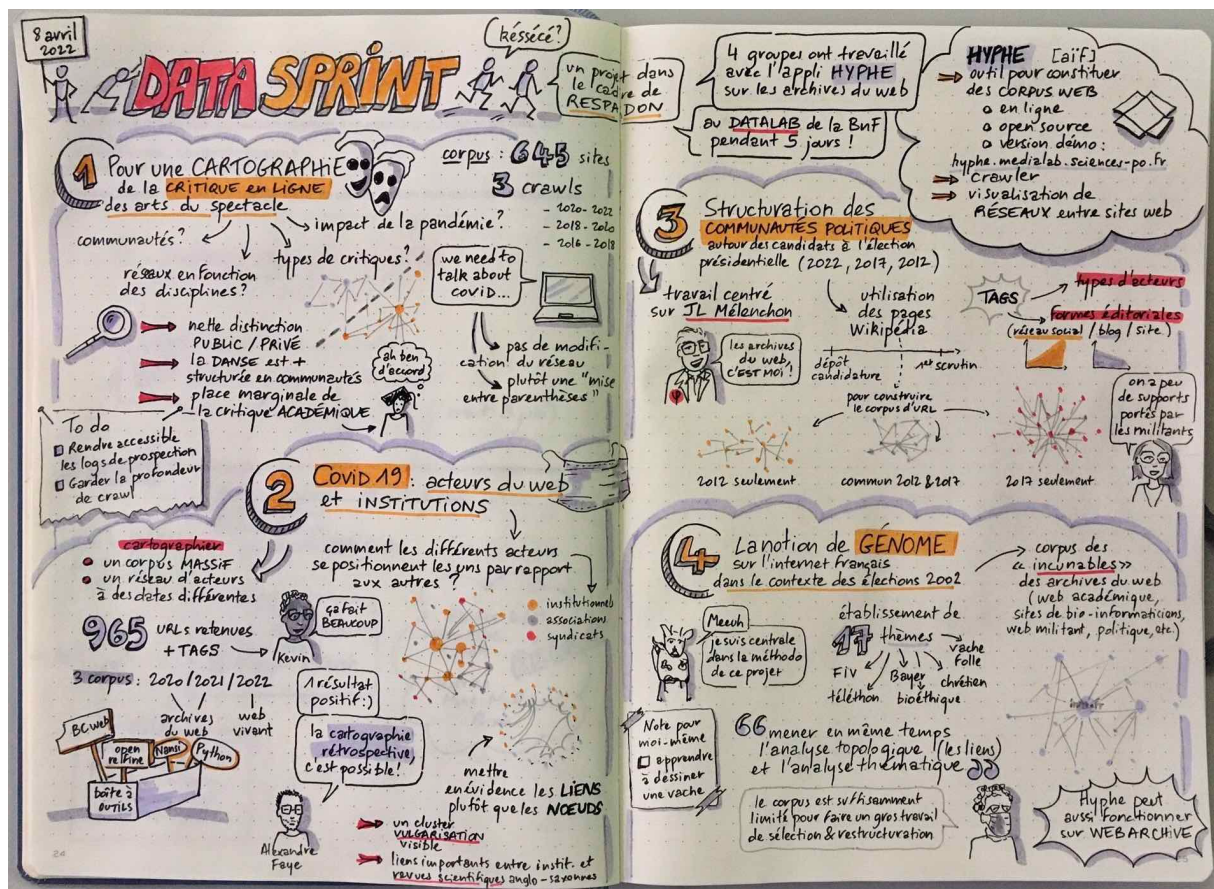 8 avril
2022
DATA SPRINT
késsécé?
un projet dans
le cadre de
RESPADON
4 groupes ont travaillé
avec l'appli HYPHE
sur les archives du web
au DATALAB de la BnF
pendant 5 jours !
HYPHE [aïf]
outil pour constituer
des CORPUS WEB
en ligne
open source
version démo :
hyphe.medialab.sciences-po.fr
crawler
visualisation de
RÉSEAUX entre sites web
1 Pour une CARTOGRAPHIE
de la CRITIQUE en LIGNE
des arts du spectacle
corpus : 645 sites
3 crawls
- 2020-2022
- 2018-2020
- 2016-2018
communautés ?
impact de la pandémie ?
types de critiques ?
réseaux en fonction
des disciplines ?
we need to
talk about
covid...
nette distinction
PUBLIC / PRIVÉ
la DANSE est +
structurée en communautés
place marginale de
la critique ACADÉMIQUE
ah ben
d'accord
pas de modifi-
cation du réseau
plutôt une "mise
entre parenthèses"
To do
Rendre accessible
les logs de prospection
Garder la profondeur
de crawl
2 Covid 19 : acteurs du web
et INSTITUTIONS
comment les différents acteurs
se positionnent les uns par rapport
aux autres ?
cartographier
un corpus MASSIF
un réseau d'acteurs
à des dates différentes
965 URLs retenues
+ TAGS
Kevin
ça fait
BEAUCOUP
institutionnels
associations
syndicats
3 corpus : 2020/2021/2022
archives
du web
web
vivant
BCweb
open
refine
Nansi
Python
boîte à
outils
1 résultat
positif :)
la cartographie
rétrospective,
c'est possible !
Alexandre
Faye
mettre
en évidence les LIENS
plutôt que les NOEUDS
un cluster
VULGARISATION
visible
liens importants entre instit. et
revues scientifiques anglo-saxonnes
24
3 Structuration des
COMMUNAUTÉS POLITIQUES
autour des candidats à l'élection
présidentielle (2022, 2017, 2012)
travail centré
sur JL Mélenchon
utilisation
des pages
Wikipédia
TAGS
types d'acteurs
formes éditoriales
(réseau social / blog / site)
les archives
du web,
c'EST MOI !
φ
dépôt
candidature
1er scrutin
pour construire
le corpus d'URL
on a peu
de supports
portés par
les militants
2012 seulement
commun 2012 & 2017
2017 seulement
4 La notion de GÉNOME
sur l'internet français
dans le contexte des élections 2002
corpus des
« incunables »
des archives du web
(web académique,
sites de bio-informaticiens,
web militant, politique, etc.)
Meeuh
je suis centrale
dans la méthodo
de ce projet
établissement de
17 thèmes
FIV
téléthon
Bayer
bioéthique
chrétien
vache
folle
Note pour
moi-même
apprendre
à dessiner
une vache
“ mener en même temps
l'analyse topologique (les liens)
et l'analyse thématique ”
le corpus est suffisamment
limité pour faire un gros travail
de sélection & restructuration
Hyphe peut
aussi fonctionner
sur WEBARCHIVE